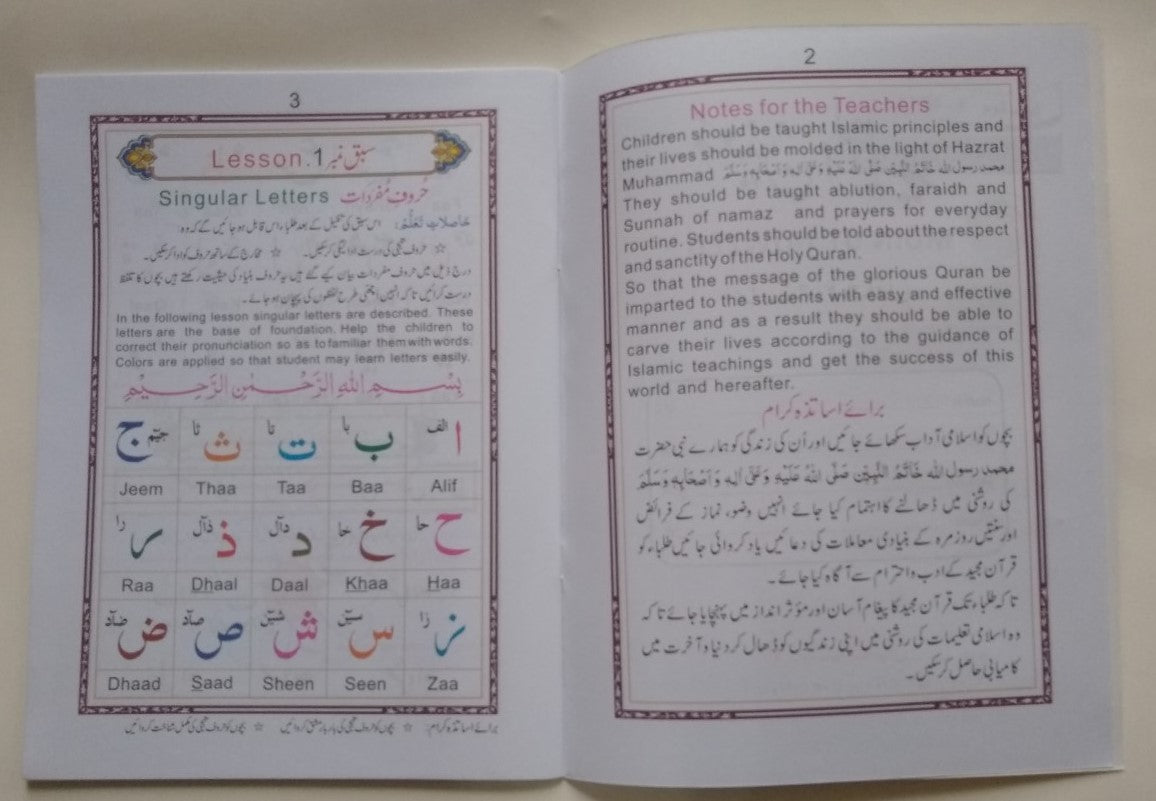 2
Notes for the Teachers
Children should be taught Islamic principles and
their lives should be molded in the light of Hazrat
Muhammad محمد رسول الله خَاتَمُ النَّبِيّٖن صَلَّى اللهُ عَلَيْهِ وَعَلىٰ اٰلِهٖ وَاَصْحَابِهٖ وَسَلَّمَ
They should be taught ablution, faraidh and
Sunnah of namaz and prayers for everyday
routine. Students should be told about the respect
and sanctity of the Holy Quran.
So that the message of the glorious Quran be
imparted to the students with easy and effective
manner and as a result they should be able to
carve their lives according to the guidance of
Islamic teachings and get the success of this
world and hereafter.
برائے اساتذہ کرام
بچوں کو اسلامی آداب سکھائے جائیں اور اُن کی زندگی کو ہمارے نبی حضرت
محمد رسول الله خَاتَمُ النَّبِيّٖن صَلَّى اللهُ عَلَيْهِ وَعَلىٰ اٰلِهٖ وَاَصْحَابِهٖ وَسَلَّمَ
کی روشنی میں ڈھالنے کا اہتمام کیا جائے انہیں وضو، نماز کے فرائض
اور سنتیں روزمرہ کے بنیادی معاملات کی دعائیں یاد کروائی جائیں طلباء کو
قرآن مجید کے ادب و احترام سے آگاہ کیا جائے۔
تاکہ طلباء تک قرآن مجید کا پیغام آسان اور مؤثر انداز میں پہنچایا جائے تاکہ
وہ اسلامی تعلیمات کی روشنی میں اپنی زندگیوں کو ڈھال کر دنیا و آخرت میں
کامیابی حاصل کر سکیں۔
3
Lesson.1 سبق نمبر
Singular Letters حُروفِ مُفرَدَات
حَاصلاتِ تَعَلُّم: اس سبق کی تکمیل کے بعد طلباء اس قابل ہو جائیں گے کہ وہ:
☆ حروف تہجی کی درست ادائیگی کر سکیں۔ ☆ مخارج کے ساتھ حروف کو ادا کر سکیں۔
درج ذیل میں حروف مفردات بیان کیے گئے ہیں یہ حروف بنیاد کی حیثیت رکھتے ہیں بچوں کا تلفظ
درست کرائیں تاکہ انہیں اچھی طرح لفظوں کی پہچان ہو جائے۔
In the following lesson singular letters are described. These
letters are the base of foundation. Help the children to
correct their pronunciation so as to familiar them with words.
Colors are applied so that student may learn letters easily.
بِسْمِ اللهِ الرَّحْمٰنِ الرَّحِيْمِ
ا الف ب با ت تا ث ثا ج جیٓم
Jeem Thaa Taa Baa Alif
ح حا خ خا د دآل ذ ذآل ر را
Raa Dhaal Daal Khaa Haa
ز زا س سیٓن ش شیٓن ص صآد ض ضآد
Dhaad Saad Sheen Seen Zaa
برائے اساتذہ کرام: ☆ بچوں کو حروف تہجی کی بار بار مشق کروائیں ☆ بچوں کو حروف تہجی کی مکمل شناخت کروائیں